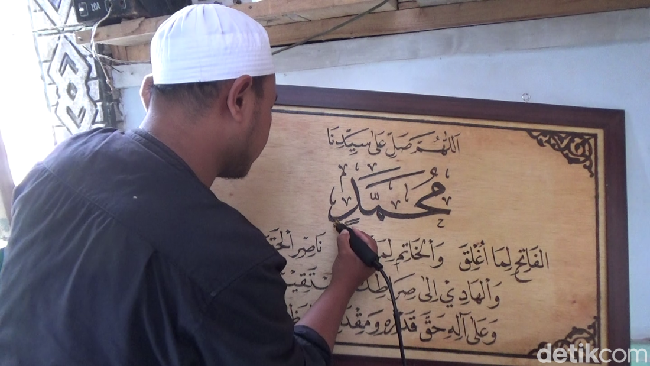 اَللّٰهُمَّ صَلِّ عَلَى سَيِّدِنَا
مُحَمَّدٍ
الفَاتِحِ لِمَا أُغْلِقَ وَالْخَاتِمِ نَاصِرِ الْحَقِّ
وَالْهَادِيْ إِلَى
وَعَلَى آلِهِ حَقَّ قَدْرِهِ
detikcom